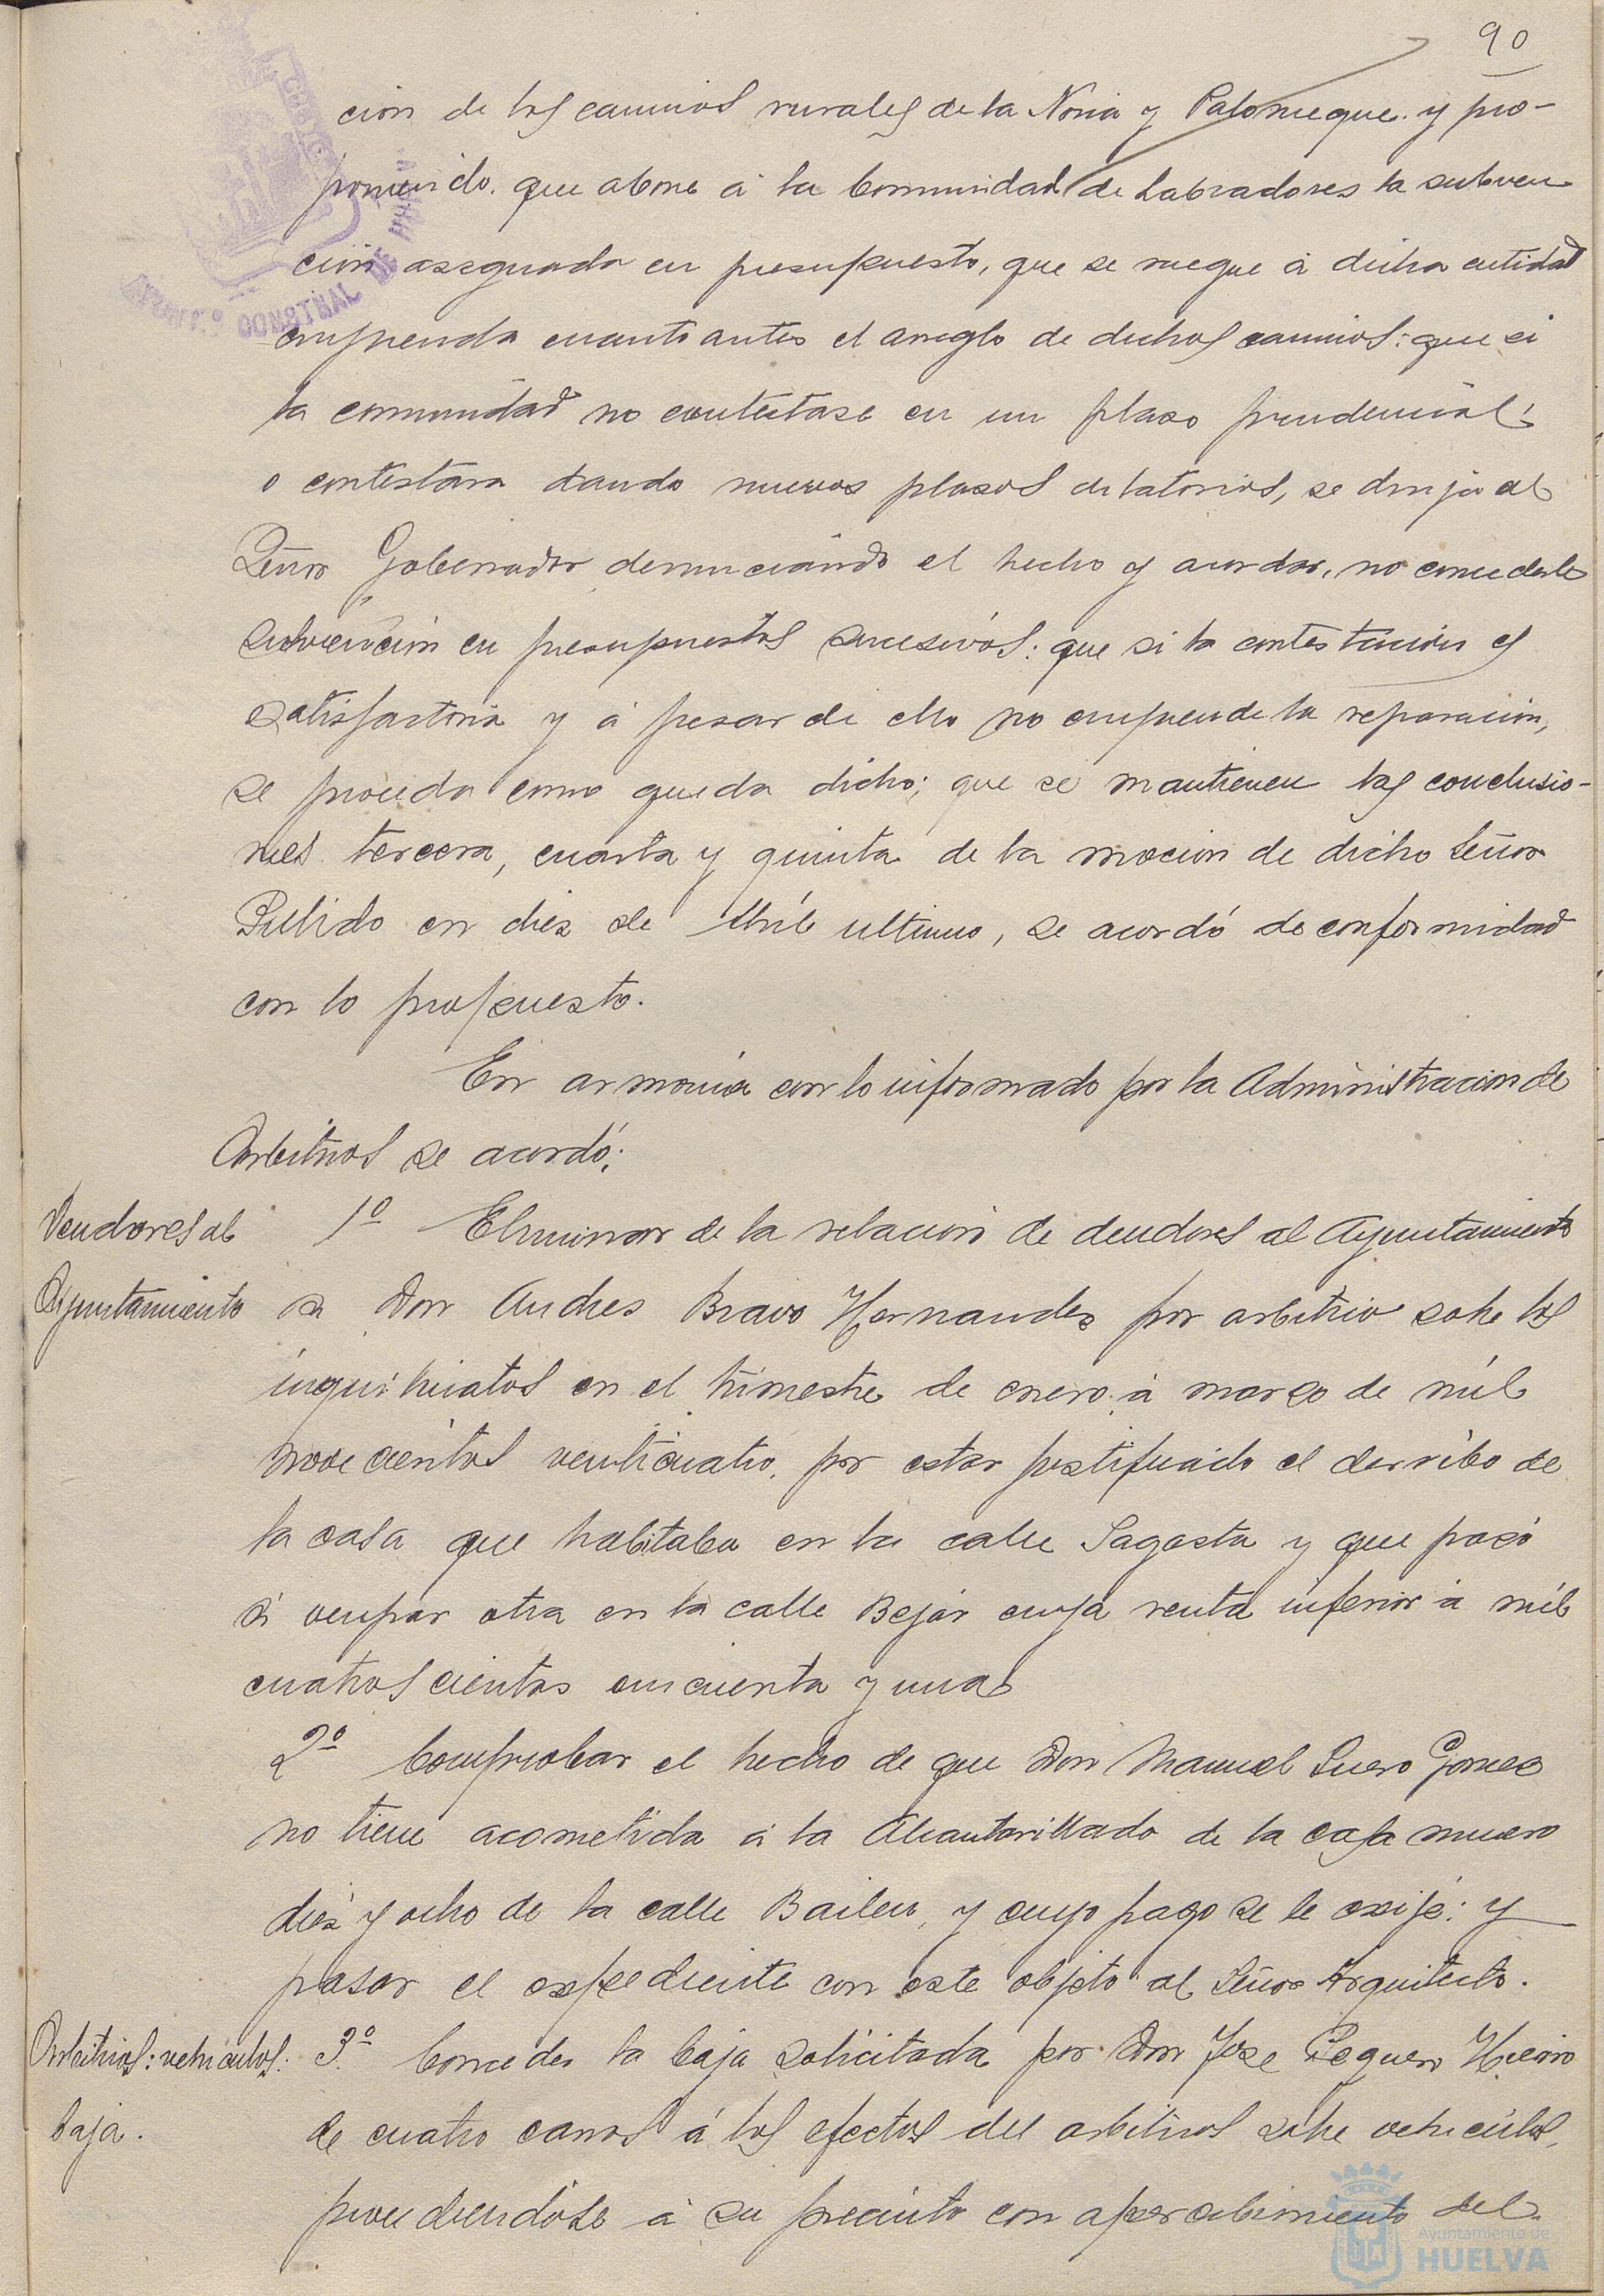 90
ción de los caminos rurales de la Noria y Palomeque. y pro-
poniendo. que abone á la Comunidad de Labradores la subven
ción asignada en presupuesto, que se ruegue á dicha entidad
emprenda cuanto antes el arreglo de dichos caminos: que si
la comunidad no contestase en un plazo prudencial,
o contestara dando nuevos plazos dilatorios, se dirija al
Señor Gobernador denunciando el hecho y acordar, no concederle
subvención en presupuestos sucesivos: que si la contestación es
satisfactoria y á pesar de ello no emprende la reparación,
se proceda como queda dicho; que se mantienen las conclusio-
nes tercera, cuarta y quinta de la mocion de dicho Señor
Pulido en diez de Abril ultimo, se acordó de conformidad
con lo propuesto.
En armonía con lo informado por la Administracion de
Arbitrios se acordó:
Deudores al
Ayuntamiento
1º Eliminar de la relación de deudores al Ayuntamiento
a Don Andres Bravo Hernandez por arbitrio sobre los
inquilinatos en el trimestre de enero á marzo de mil
novecientos veinticuatro, por estar justificado el derribo de
la casa que habitaba en la calle Sagasta y que pasó
á ocupar otra en la calle Bejar cuya renta inferior á mil
cuatroscientas cincuenta y una
2º Comprobar el hecho de que Don Manuel Suero Gomez
no tiene acometida á la Alcantarillado de la casa numero
diez y ocho de la calle Bailen, y cuyo pago se le exije: y
pasar el expediente con este objeto al Señor Arquitecto.
Arbitrios: vehiculos:
baja.
3º Conceder la baja solicitada por Don Jose Peguero Hierro
de cuatro carros á los efectos del arbitrios sobre vehiculos,
procediendose á su precinto con apercibimiento del
Ayuntamiento de
HUELVA